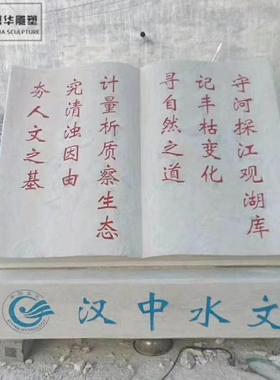 明华雕塑
UA SCULPTURE
守河探江观湖库
记丰枯变化
寻自然之道
计量析质察生态
究清浊因由
夯人文之基
汉中水文